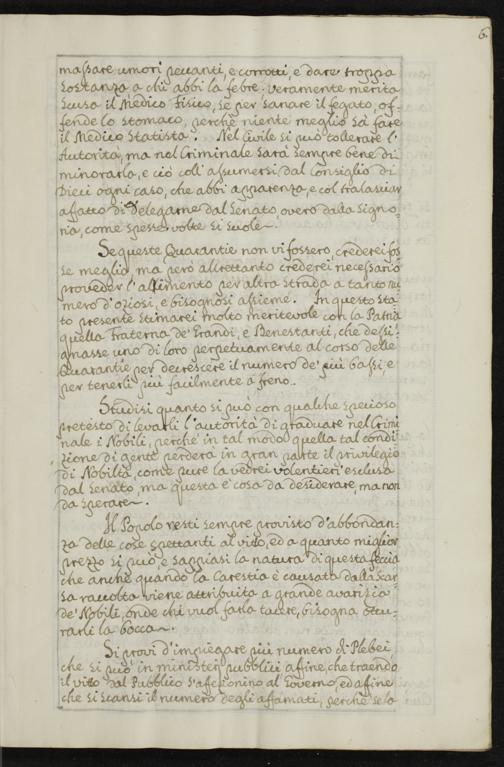 6.
massare umori peccanti, e corrotti, e dare troppa
sostanza a chi abbi la febre: veramente merita
scusa il Medico Fisico, se per sanare il fegato, of-
fende lo stomaco, perche niente meglio sà fare
il Medico Statista. Nel Civile si può tollerare l'
Autorità, ma nel Criminale sarà sempre bene di
minorarla, e ciò coll'assumersi dal Consiglio di
Dieci ogni caso, che abbi apparenza, e col tralasciar
affatto di Delegarne dal Senato, overo dalla Signo-
ria, come spesse volte si suole.
Se queste Quarantie non vi fossero, crederei fos
se meglio, ma però altrettanto crederei necessario
proveder l'alimento per altra strada a tanto nu
mero d'oziosi, e bisognosi assieme. In questo sta-
to presente stimarei molto meritevole con la Patria
quella Fraterna de' Grandi, e Benestanti, che desti-
gnasse uno di loro perpetuamente al corso delle
Quarantie per decrescere il numero de' più bassi, e
per tenerli più facilmente a freno.
Studisi quanto si può con qualche specioso
pretesto di levarli l'autorità di graduare nel Crimi
nale i Nobili, perche in tal modo quella tal condi-
zione di gente perderà in gran parte il privilegio
di Nobiltà, come pure la vedrei volentieri esclusa
dal Senato, ma questa è cosa da desiderare, ma non
da sperare.
Il Popolo resti sempre provisto d'abbondan-
za delle cose spettanti al vitto, ed a quanto miglior
prezzo si può, e sappiasi la natura di questa feccia
che anche quando la Carestia è causata dalla scar
sa raccolta viene attribuita a grande avarizia
de' Nobili, onde chi vuol farla tacere, bisogna ottu-
rarli la bocca.
Si provi d'impiegare più numero di Plebei,
che si può in ministerij pubblici affine, che traendo
il vitto dal Pubblico s'affezionino al Governo, ed affine
che si scansi il numero degli affamati, perche se la